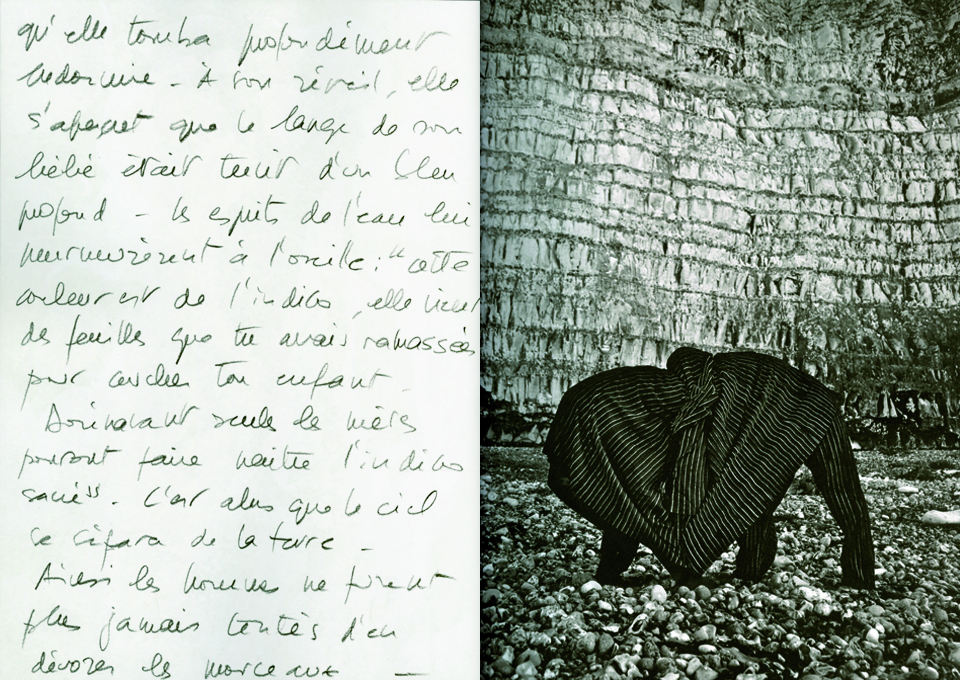 qu'elle tomba profondément
endormie - À son réveil, elle
s'aperçut que le lange de son
bébé était teint d'un bleu
profond - les esprits de l'eau lui
murmurèrent à l'oreille : "cette
couleur est de l'indigo, elle vient
des feuilles que tu avais ramassées
pour coucher ton enfant.
Dorénavant seules les mères
pourront faire naître l'indigo
sacré". C'est alors que le ciel
se sépara de la terre -
Ainsi les hommes ne furent
plus jamais tentés d'en
dévorer les morceaux —